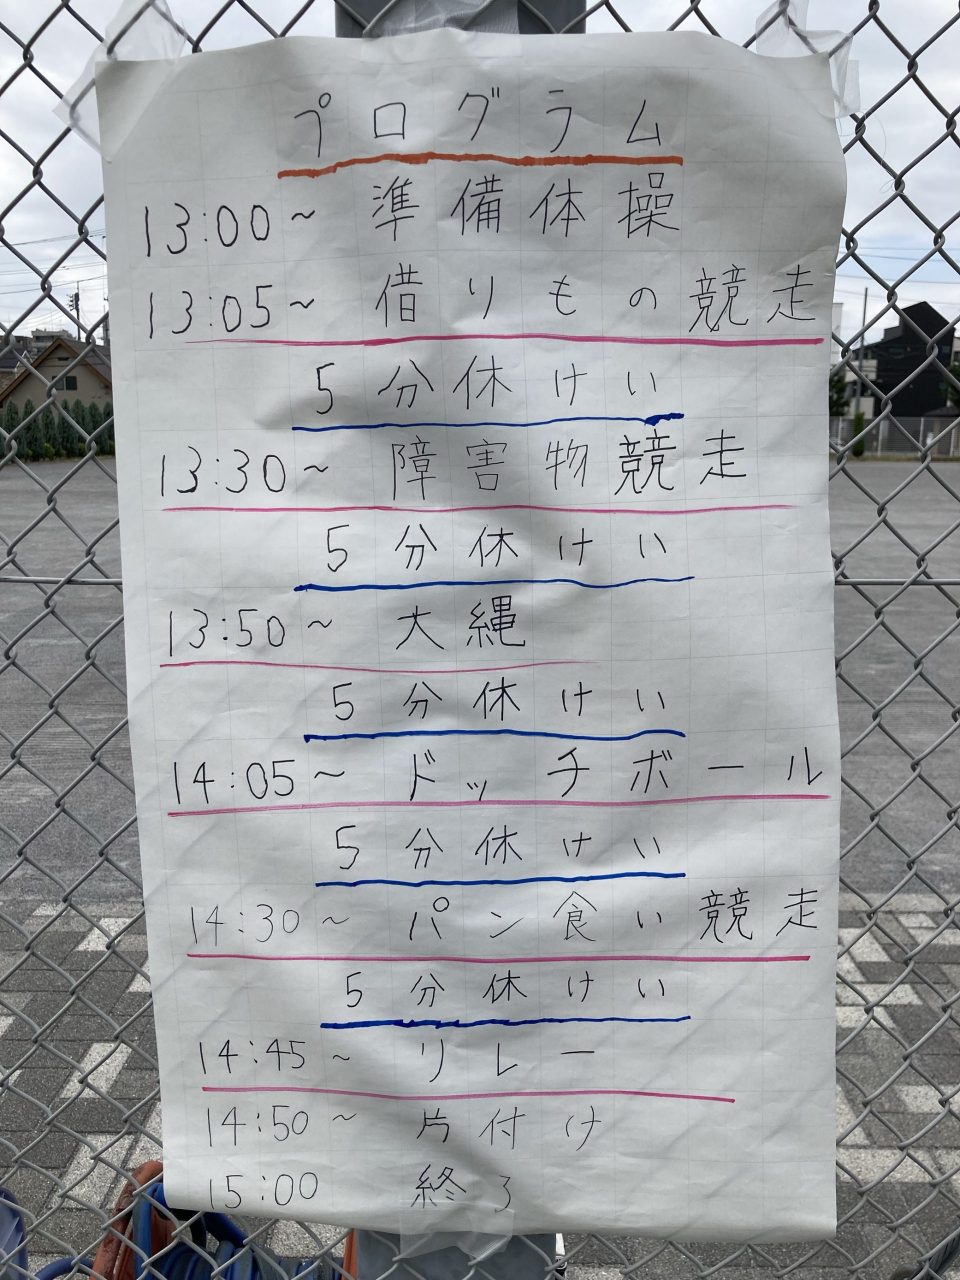 プログラム
13:00~ 準備体操
13:05~ 借りもの競走
5分休けい
13:30~ 障害物競走
5分休けい
13:50~ 大縄
5分休けい
14:05~ ドッチボール
5分休けい
14:30~ パン食い競走
5分休けい
14:45~ リレー
14:50~ 片付け
15:00 終了